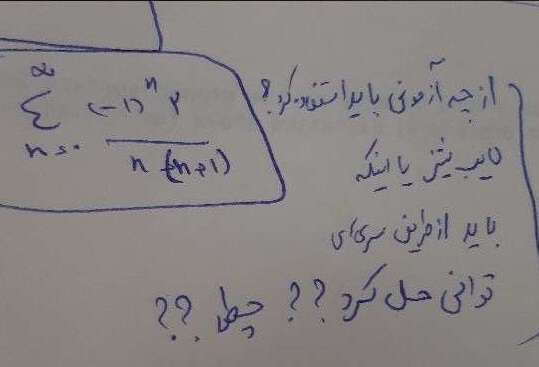 ∞
Σ (-1)ⁿ ۲ / n(n+1)
n=۰
از چه آزمونی باید استفاده کرد؟
لایب نیتز یا اینکه
باید از طریق سری های
توانی حل کرد؟؟ چطور؟؟